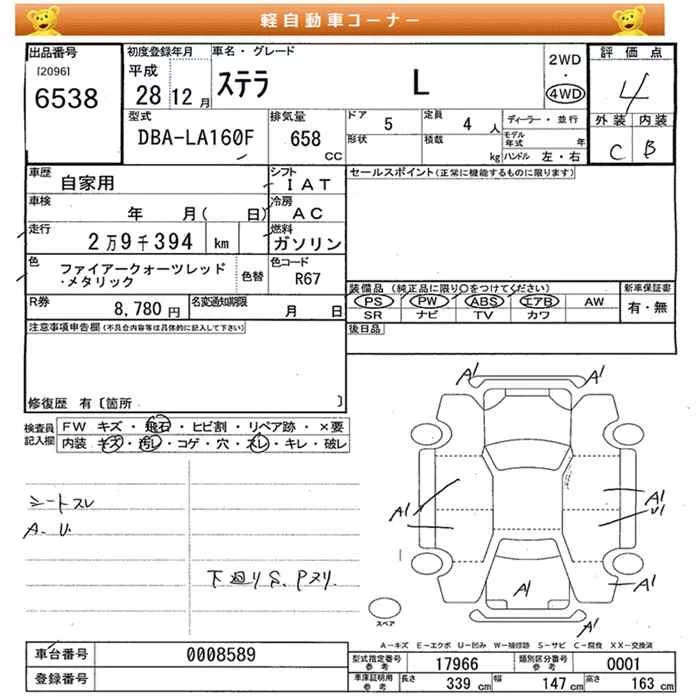 軽自動車コーナー
出品番号 初度登録年月 車名・グレード 評価点
[2096] 平成 2WD
6538 28 12月 ステラ L ・ 4
4WD
型式 排気量 ドア 5 定員 4人 ディーラー・並行 外装 内装
DBA-LA160F 658 cc 形状 積載 kg モデル年式 年 C B
ハンドル 左・右
車歴 自家用 シフト IAT セールスポイント(正常に機能するものに限ります)
車検 年 月( 日) 冷房 AC
走行 2万9千394 km 燃料 ガソリン
色 ファイアークォーツレッド・メタリック 色替 色コード R67
装備品(純正品に限り○をつけてください) 新車保証書
R券 8,780円 名変通知期限 月 日 PS PW ABS エアB AW 有・無
SR ナビ TV カワ
注意事項申告欄(不具合内容等は具体的に記入して下さい) 後日品
修復歴 有〔箇所 〕
検査員記入欄 FW キズ・飛石・ヒビ割・リペア跡・×要
内装 キズ・汚レ・コゲ・穴・スレ・キレ・破レ
A1 A1
シートスレ
A1 A1
A.U. U1
下廻りS、Pスリ.
A1 A1
スペア A1
A-キズ E-エクボ U-凹み W-補修跡 S-サビ C-腐食 XX-交換済
車台番号 0008589 型式指定番号参考 17966 類別区分番号参考 0001
登録番号 車庫証明用参考 長さ 339 cm 幅 147 cm 高さ 163 cm